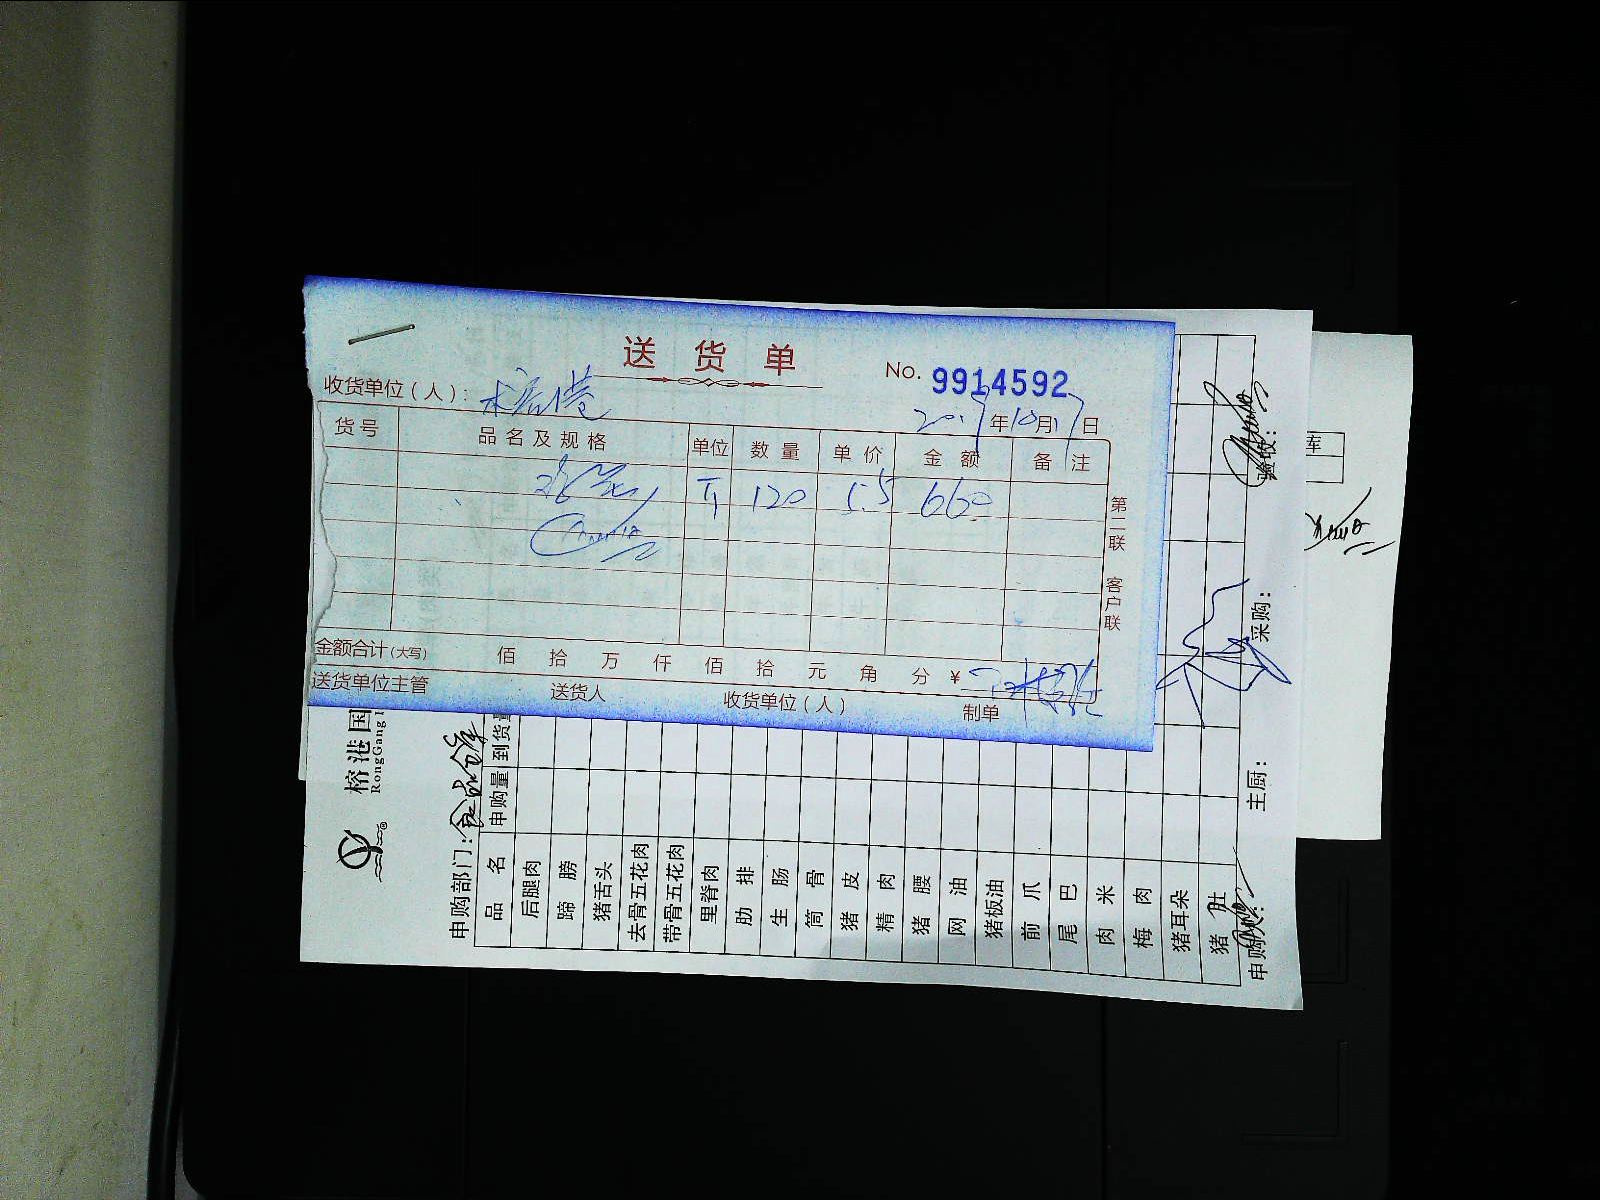 送货单
No. 9914592
收货单位（人）：榕港
2017年10月17日
货号 品名及规格 单位 数量 单价 金额 备注
斤 120 5.5 660
第二联 客户联
金额合计(大写) 佰 拾 万 仟 佰 拾 元 角 分 ¥
送货单位主管 送货人 收货单位（人） 制单
榕港国
RongGang
申购部门：
品名 申购量 到货量
后腿肉
蹄膀
猪舌头
去骨五花肉
带骨五花肉
里脊肉
肋排
生肠
筒骨
猪皮
精肉
猪腰
网油
猪板油
前爪
尾巴
肉米
梅肉
猪耳朵
猪肚
申购人： 主厨： 采购： 验收：
库